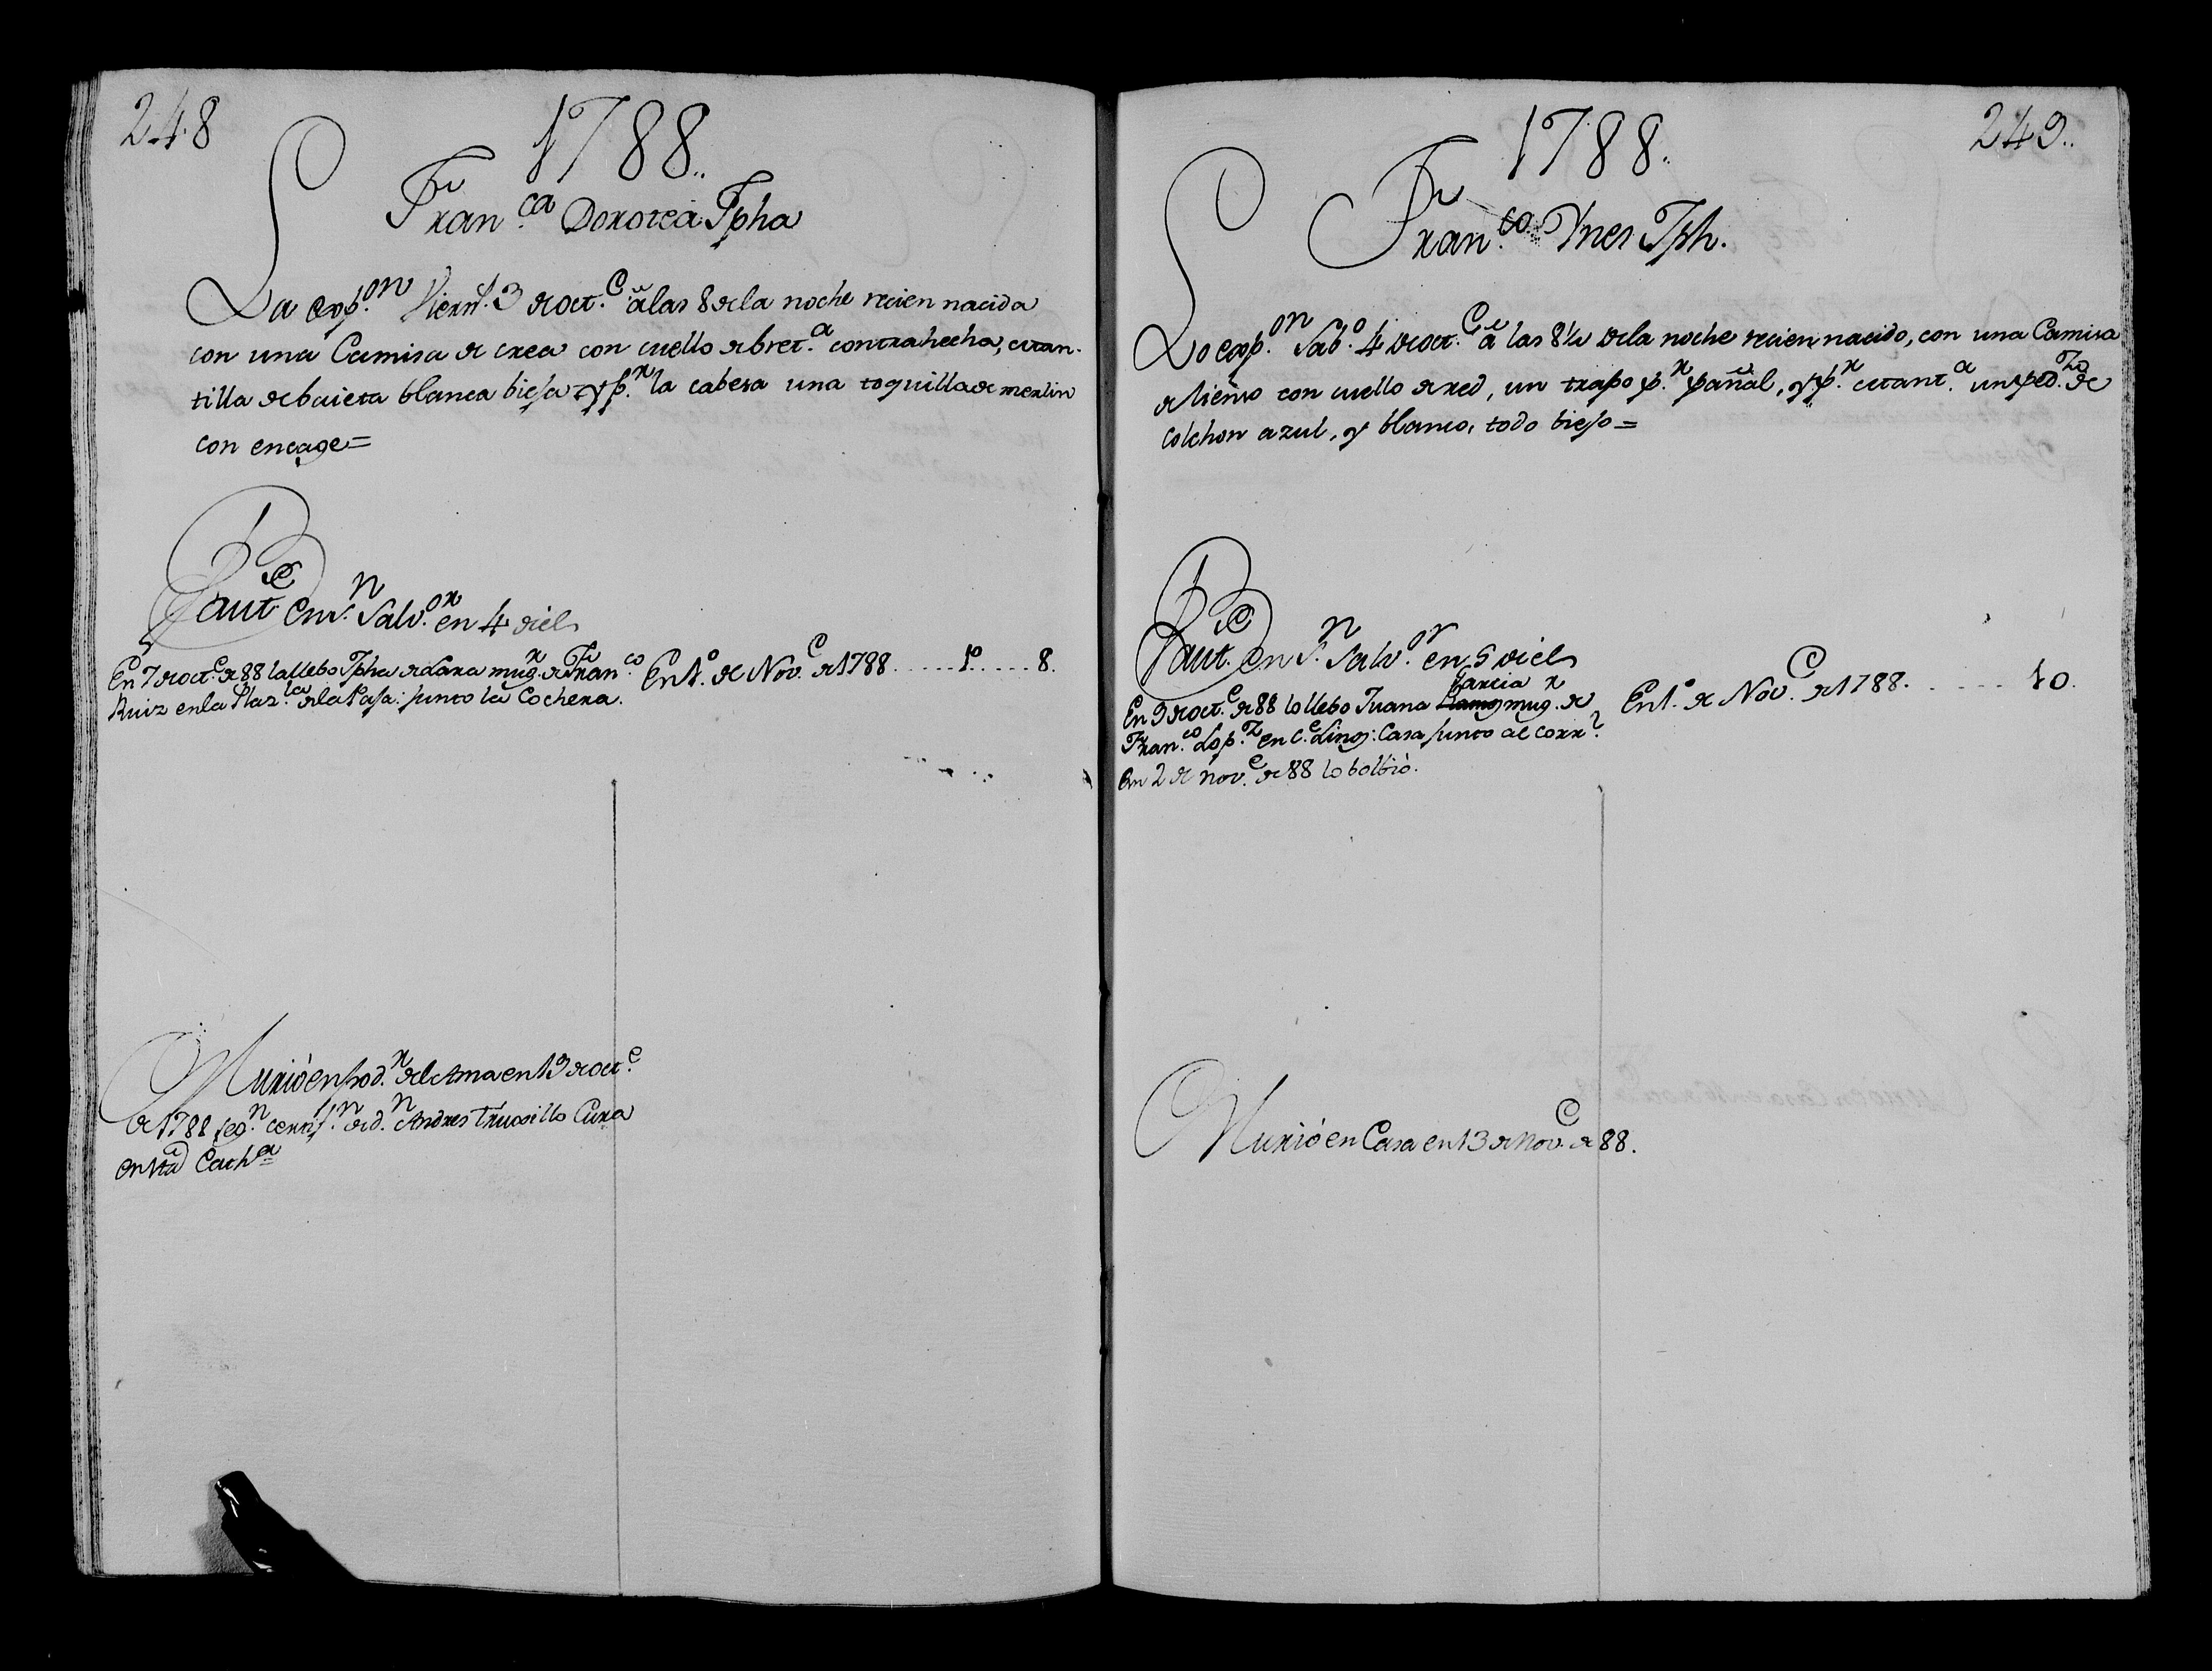 248
1788..
Fran.ca Dorotea Jpha
La exp.on Viern.s 3 de oct.e â las 8 de la noche recien nacida
con una Camisa de crea con cuello de bret.a contrahecha, man-
tilla de baieta blanca biesa y p.r la cabesa una toquilla de merlin
con encage=
Baut.e en S.n Salv.or en 4 del
En 7 de oct.e de 88 la llebo Jpha de Lara mug.r de Fran.co
Ruiz en la Plaz.lea de la Paja: junto la Cochera.
En 1.o de Nov.e de 1788......1º.....8.
Murió en pod.r del Ama en 19 de oct.e
de 1788 seg.n certif.n de d.n Andres Truosillo Cura
en sta Cath.al
249..
1788..
Fran.co Ynes Jph.
Lo exp.on Sab.o 4 de oct.e â las 8½ de la noche recien nacido, con una Camisa
de lienso con cuello de red, un trapo p.r pañal, y p.r mant.a un ped.zo de
colchon azul, y blanco, todo biejo=
Baut.e en S.n Salv.or en 5 del
Garcia
En 9 de oct.e de 88 lo llebo Juana Ramos mug.r de
Fran.co Lop.z en C.e Linos: Casa junto al corr.l
En 2 de nov.e de 88 lo bolbió.
En 1.o de Nov.e de 1788.......10.
Murió en Casa en 13 de Nov.e de 88.